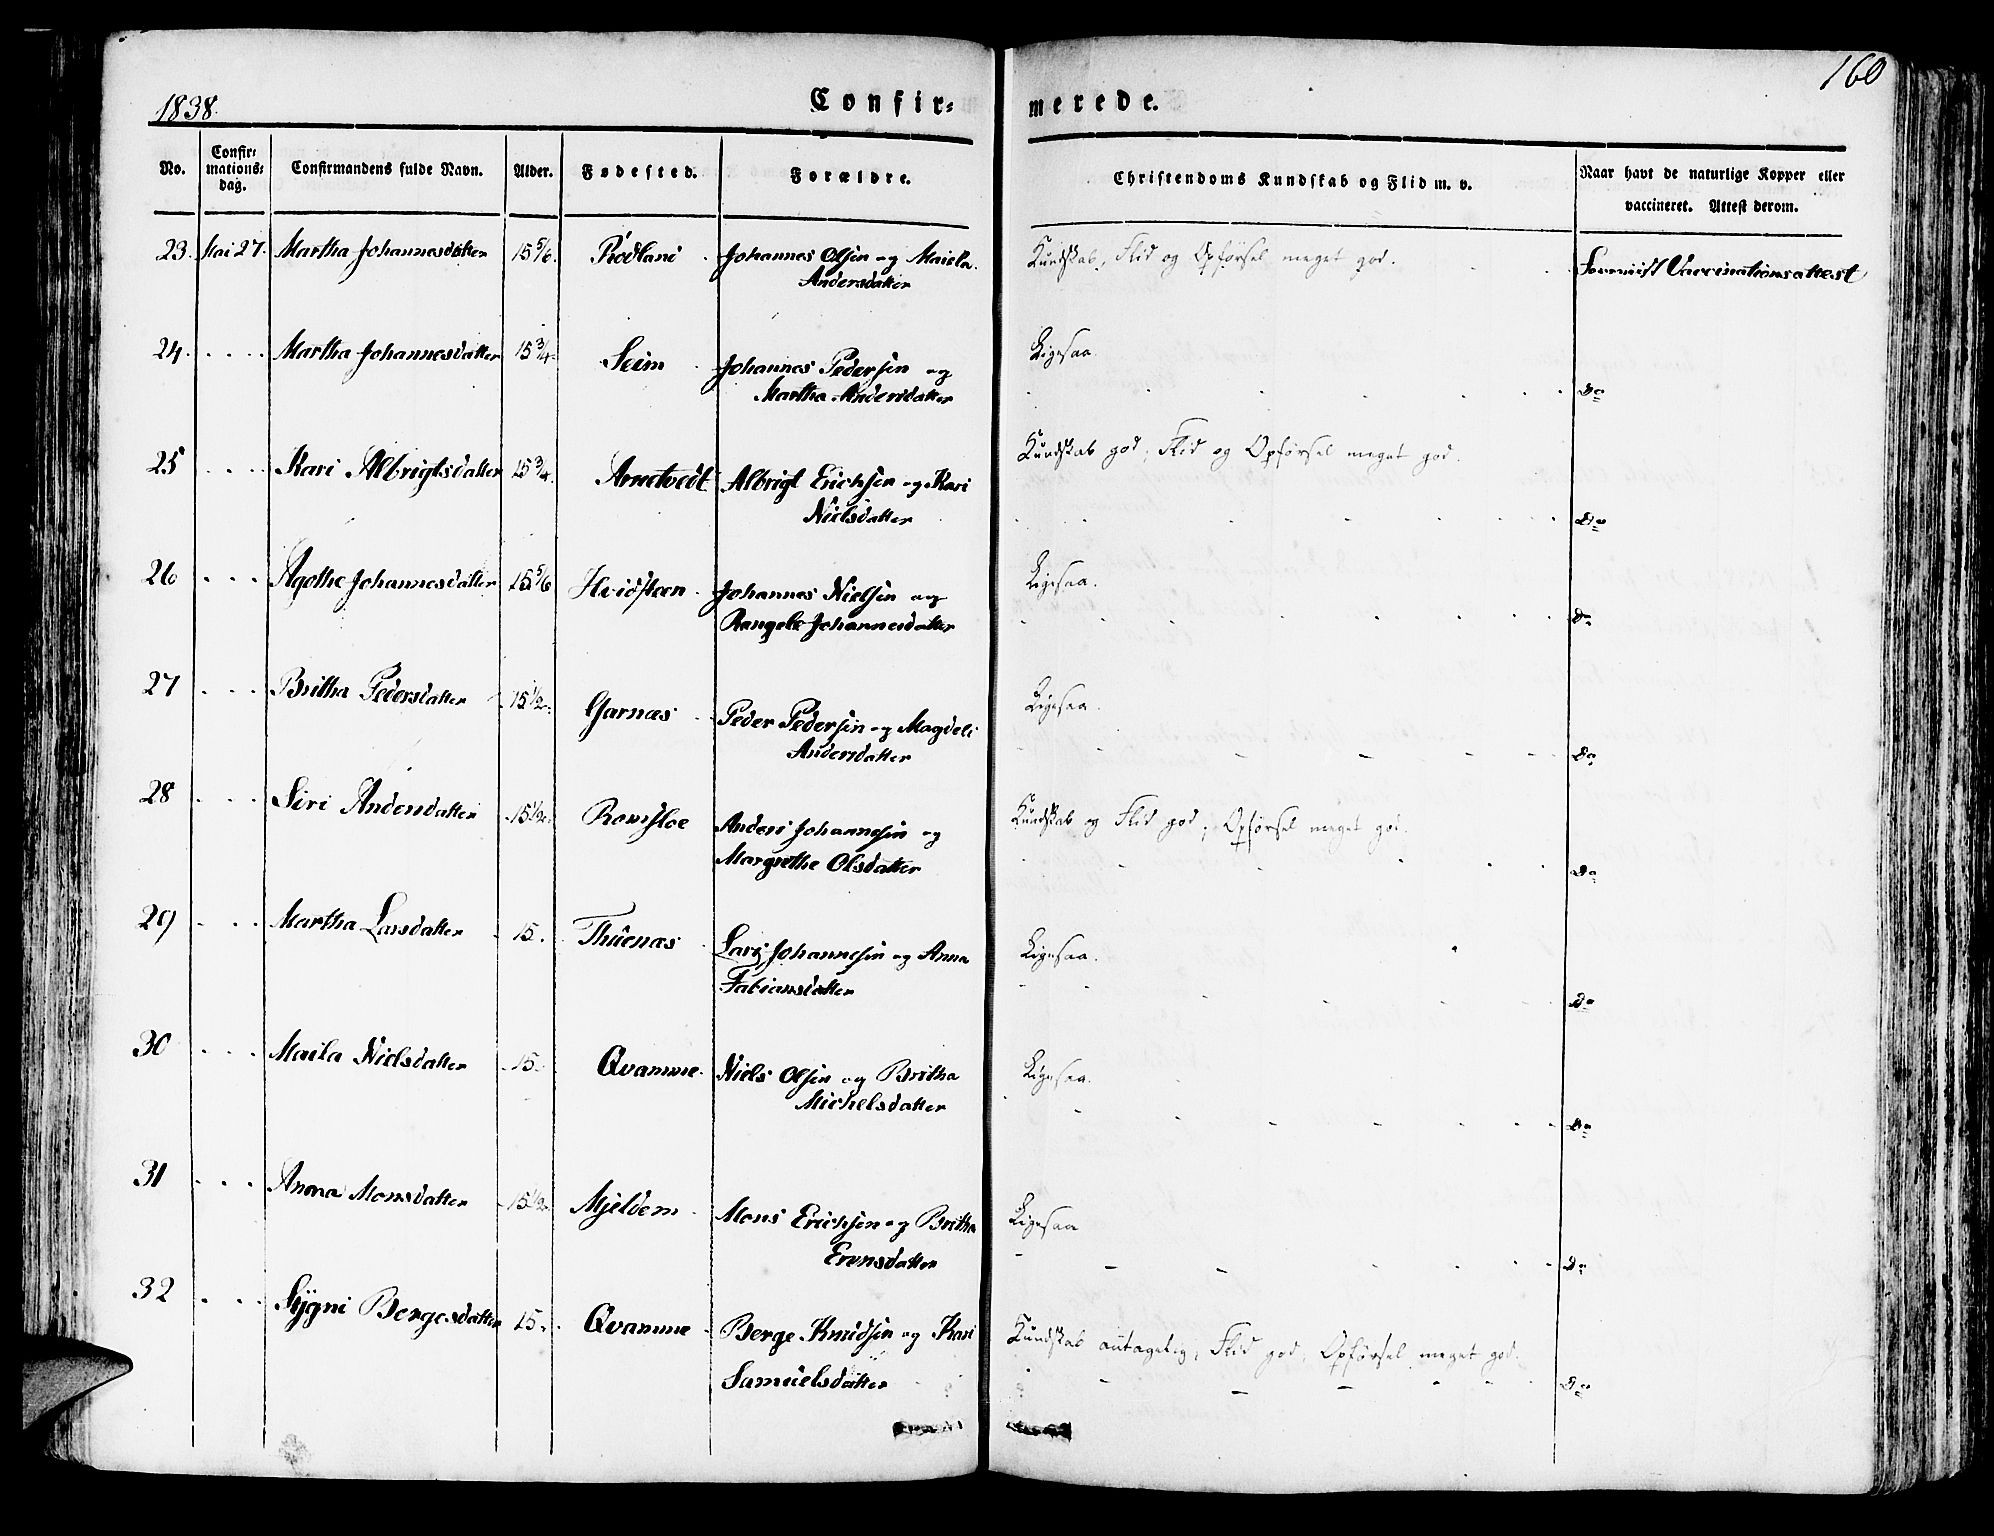 1838. Confir= merede. 160
No. Confir= mations= dag. Confirmandens fulde Navn. Alder. Fødested. Forældre. Christendoms Kundskab og Flid m. v. Naar havt de naturlige Kopper eller vaccineret. Attest derom.
23. Mai 27. Martha Johannesdatter 15 5/6. Rødland Johannes Olsen og Maiela. Kundskab, Flid og Opførsel meget god.
Andersdatter Foreviist Vaccinationsattest
24. Martha Johannesdatter 15 3/4. Seim Johannes Pedersen og Ligesaa.
Martha Andersdatter Do
25 Kari Albrigtsdatter 15 3/4. Arnetvedt Albrigt Ericksen og Kari Kundskab god, Flid og Opførsel meget god.
Nielsdatter Do
26 Agethe Johannesdatter 15 5/6 Hvidsteen Johannes Nielsen og Ligesaa.
Johannesdatter Do
27 Britha Pedersdatter 15 1/2. Garnæs Peder Pedersen og Magdeli Ligesaa.
Andersdatter Do
28 Siri Andersdatter 15 1/2. Romsloe Anders Johannesen og Kundskab og Flid god, Opførsel meget god.
Margrethe Olsdatter Do
29 Martha Larsdatter 15. Thuenæs Lars Johannesen og Anna Ligesaa.
Fabiansdatter Do
30 Maila Nielsdatter 15. Qvamme. Niels Olsen og Britha Ligesaa.
Michelsdatter Do
31 Anna Monsdatter 15 1/2. Mjeldem Mons Ericksen og Britha Ligesaa
Do
32 Sÿgni Bergesdatter 15. Qvamme Berge Knudsen og Kari Kundskab antagelig, Flid god, Opførsel meget god.
Samuelsdatter Do